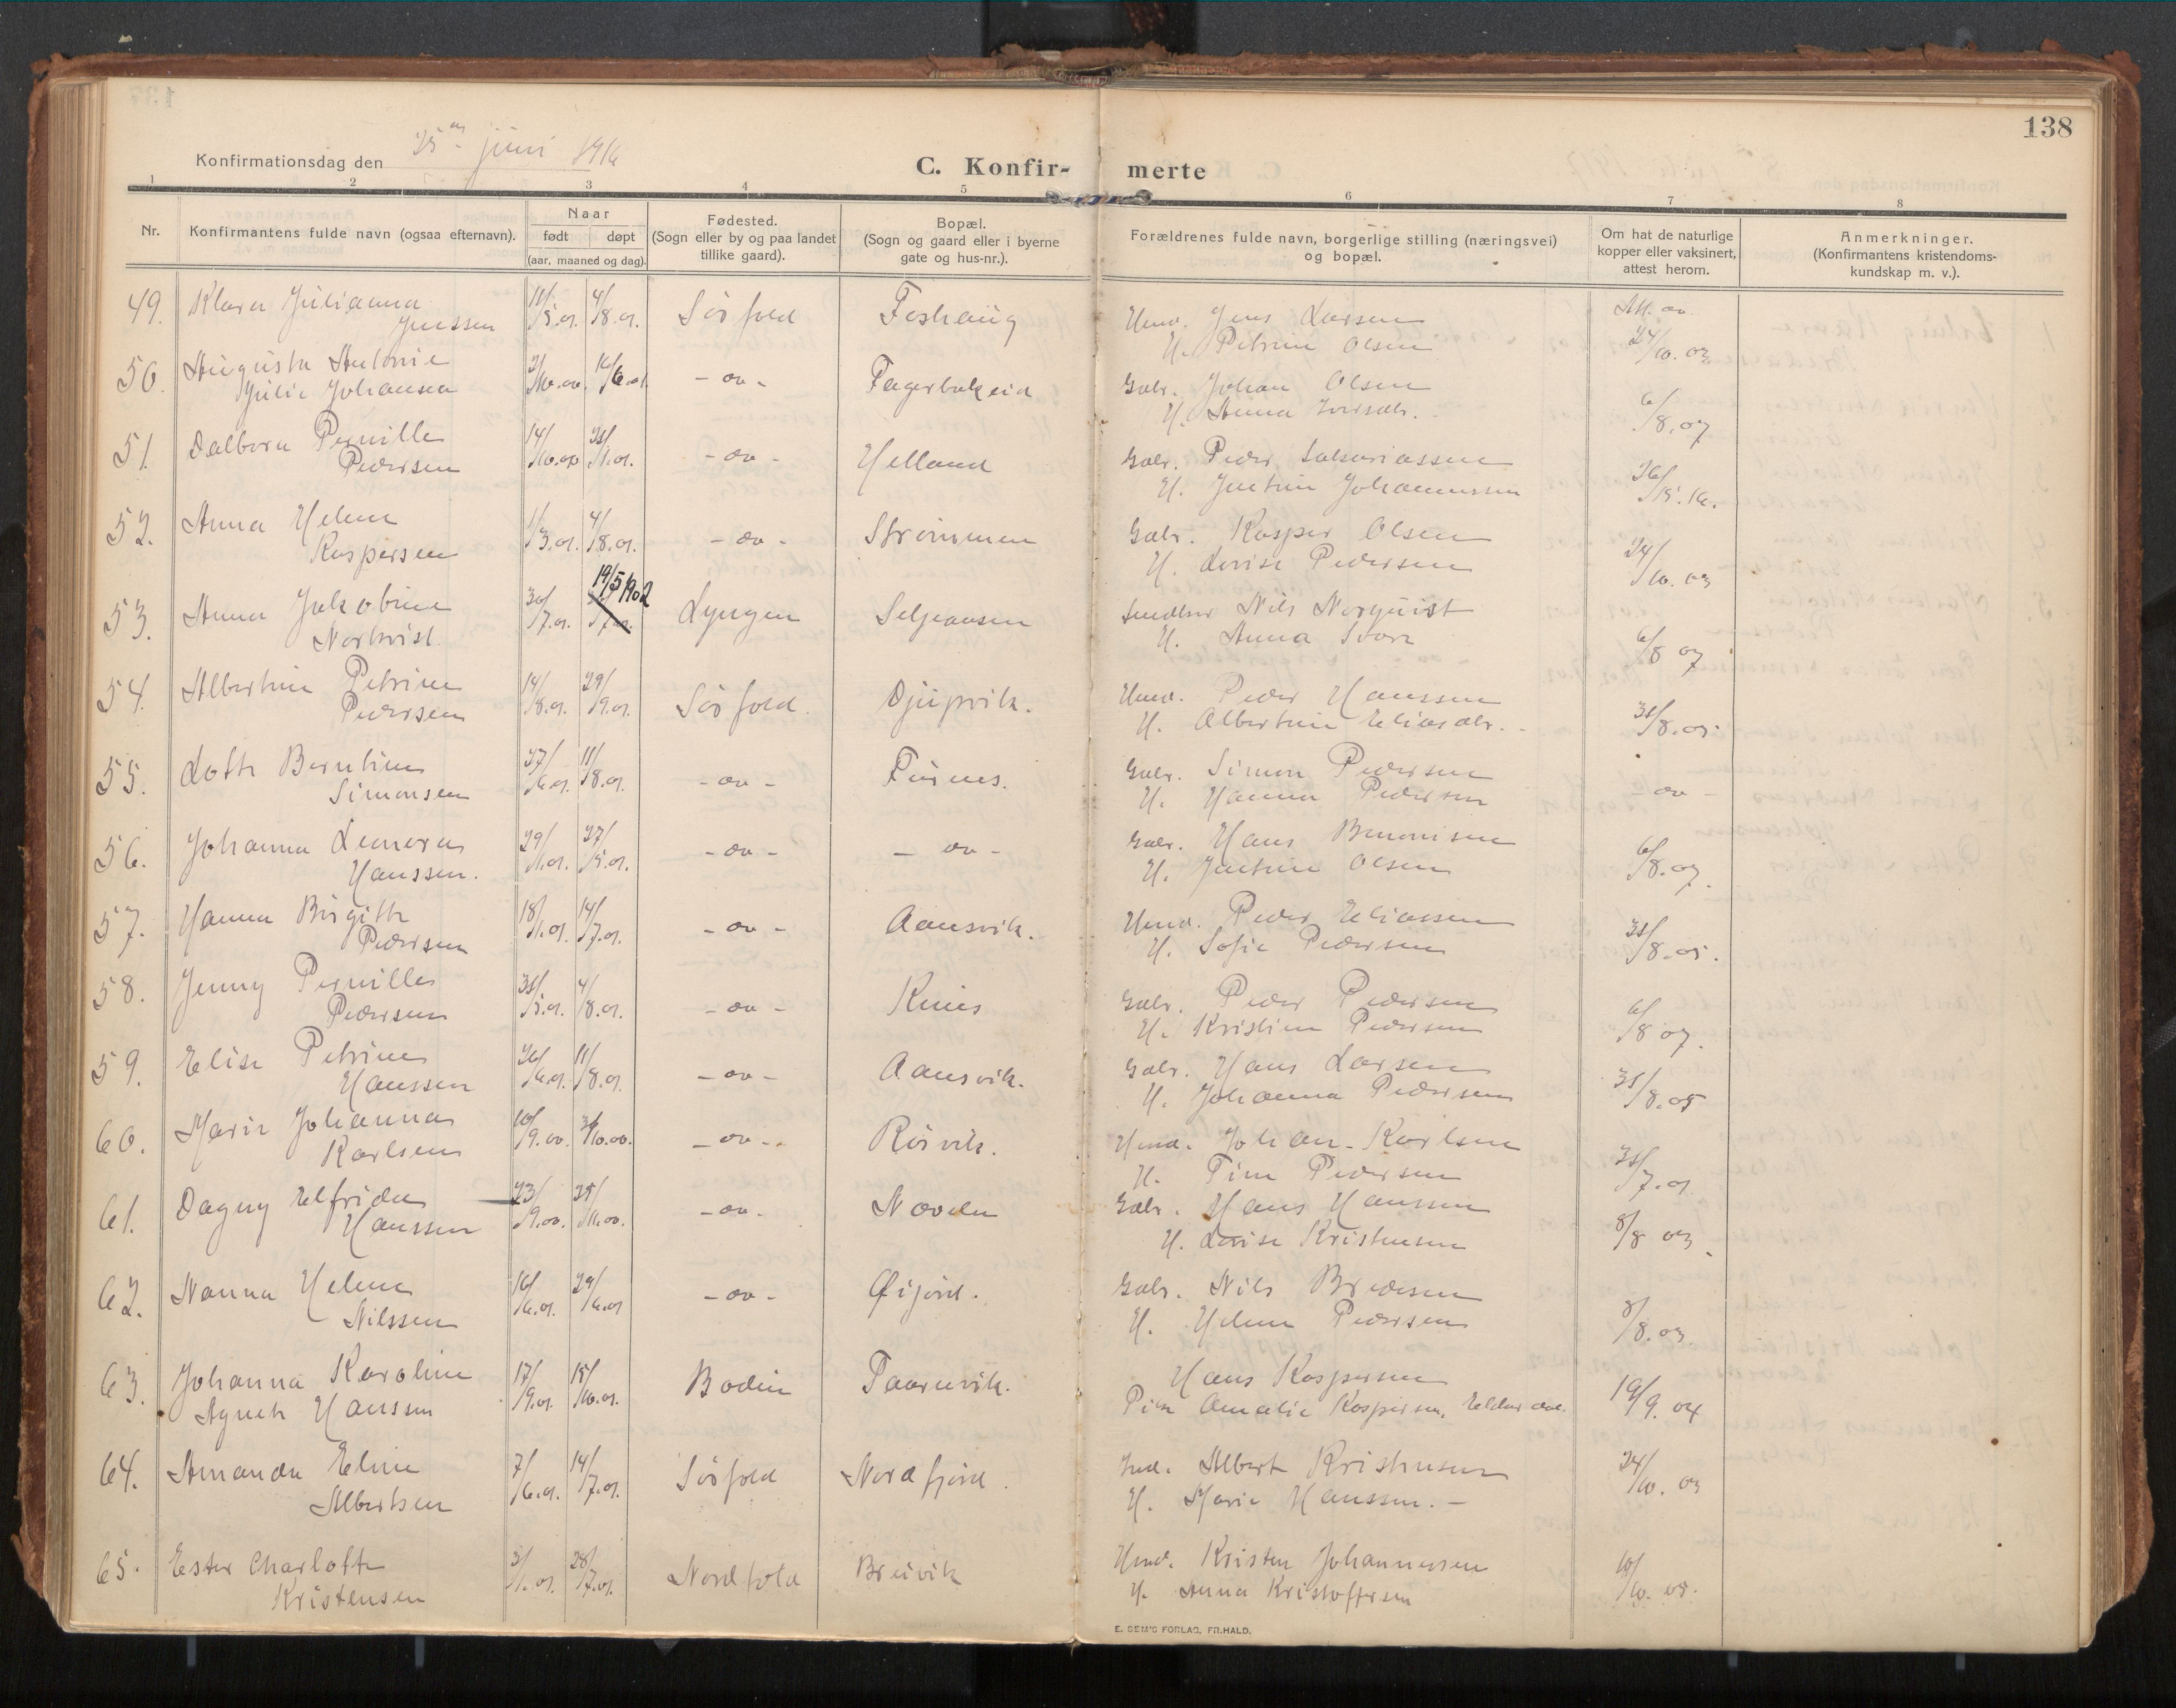 138
Konfirmationsdag den 25de juni 1916
C. Konfir- merte
1 2 3 4 5 6 7 8
Nr.
Konfirmantens fulde navn (ogsaa efternavn).
Naar
født døpt
(aar, maaned og dag).
Fødested.
(Sogn eller by og paa landet
tillike gaard).
Bopæl.
(Sogn og gaard eller i byerne
gate og hus-nr.).
Forældrenes fulde navn, borgerlige stilling (næringsvei)
og bopæl.
Om hat de naturlige
kopper eller vaksinert,
attest herom.
Anmerkninger.
(Konfirmantens kristendoms-
kundskap m. v.).
49. Klara Julianna 11/5.01. 4/8.01. Sørfold Foshaug Hmd. Jens Larsen Att. av
Jenssen H. Petrine Olsen 24/10.03
50. Augusta Antonie 2/10.00. 16/6.01. - do - Fagerbakeid Gdbr. Johan Olsen
Julie Johansen H. Anna 6/8.07
51. Dalbora Pernille 14/10.00 31/1.01. - do - Helland Gdbr. Peder Sakariassen
Pedersen H. Justine Johannessen 26/5.16.
52. Anna Helene 1/3.01. 4/8.01. - do - Strømmen Gdbr. Kasper Olsen
Kaspersen H. Lovise Pedersen 24/10.03
53. Anna Jakobine 30/7.01. 19/5 1902 Lyngen Seljeaasen Nils Norquist
Norkvist. H. Anna 6/8 07
54. Albertine Petrine 14/8.01. 29/9.01. Sørfold. Djupvik. Hmd. Peder Hanssen
Pedersen H. Albertine Eliasdtr. 31/8.05
55. Lotte Berntine 27/6.01. 11/8.01. - do - Furnes. Gdbr. Simon Pedersen
Simonsen H. Hanna Pedersen - do -
56. Johanna Leonora 29/1.01. 27/5.01. - do - - do - Gdbr. Hans Benonisen
Hanssen. H. Justine Olsen 6/8.07.
57. Hanna Birgitte 18/1.01. 14/7.01. - do - Aansvik. Hmd. Peder Eliassen
Pedersen H. Sofie Pedersen 31/8.05.
58. Jenny Pernille 31/5.01. 4/8.01. - do - Kines Gdbr. Peder Pedersen
Pedersen H. Kristine Pedersen 6/8 07.
59. Elise Petrine 26/6.01. 11/8.01. - do - Aansvik. Gdbr. Hans Larsen
Hanssen H. Johanna Pedersen 31/8.05
60. Marie Johanna 10/9.00. /10.00. - do - Rørvik. Hmd. Johan Karlsen
Karlsen H. Tine Pedersen 31/7.01
61. Dagny Elfrida 23/9.00. 25/11.00. - do - Nævelu Gdbr. Hans Hanssen
Hanssen H. Lovise Kristensen 8/8 03.
62. Nanna Helene 16/6.01. 29/6.01 - do - Øijord. Gdbr. Nils Bredesen
Nilssen H. Helene Pedersen 8/8.03
63. Johanna Karoline 17/9.01. 15/10.01. Bodin Taarnvik. Hans Kaspersen
Agnete Hanssen Pike Amalie Kaspersen, 19/9.04
64. Amanda Eline 7/6.01. 14/7.01. Sørfold Nordfjord. Ind. Albert Kristensen
Albertsen H. Marie Hanssen. - 24/10.03
65. Ester Charlotte 3/1.01. 28/7.01. Nordfold Breivik Hmd. Kristen Johannessen
Kristensen H. Anna Kristoffersen 10/10.05.
E. SEM'S FORLAG, FR.HALD.